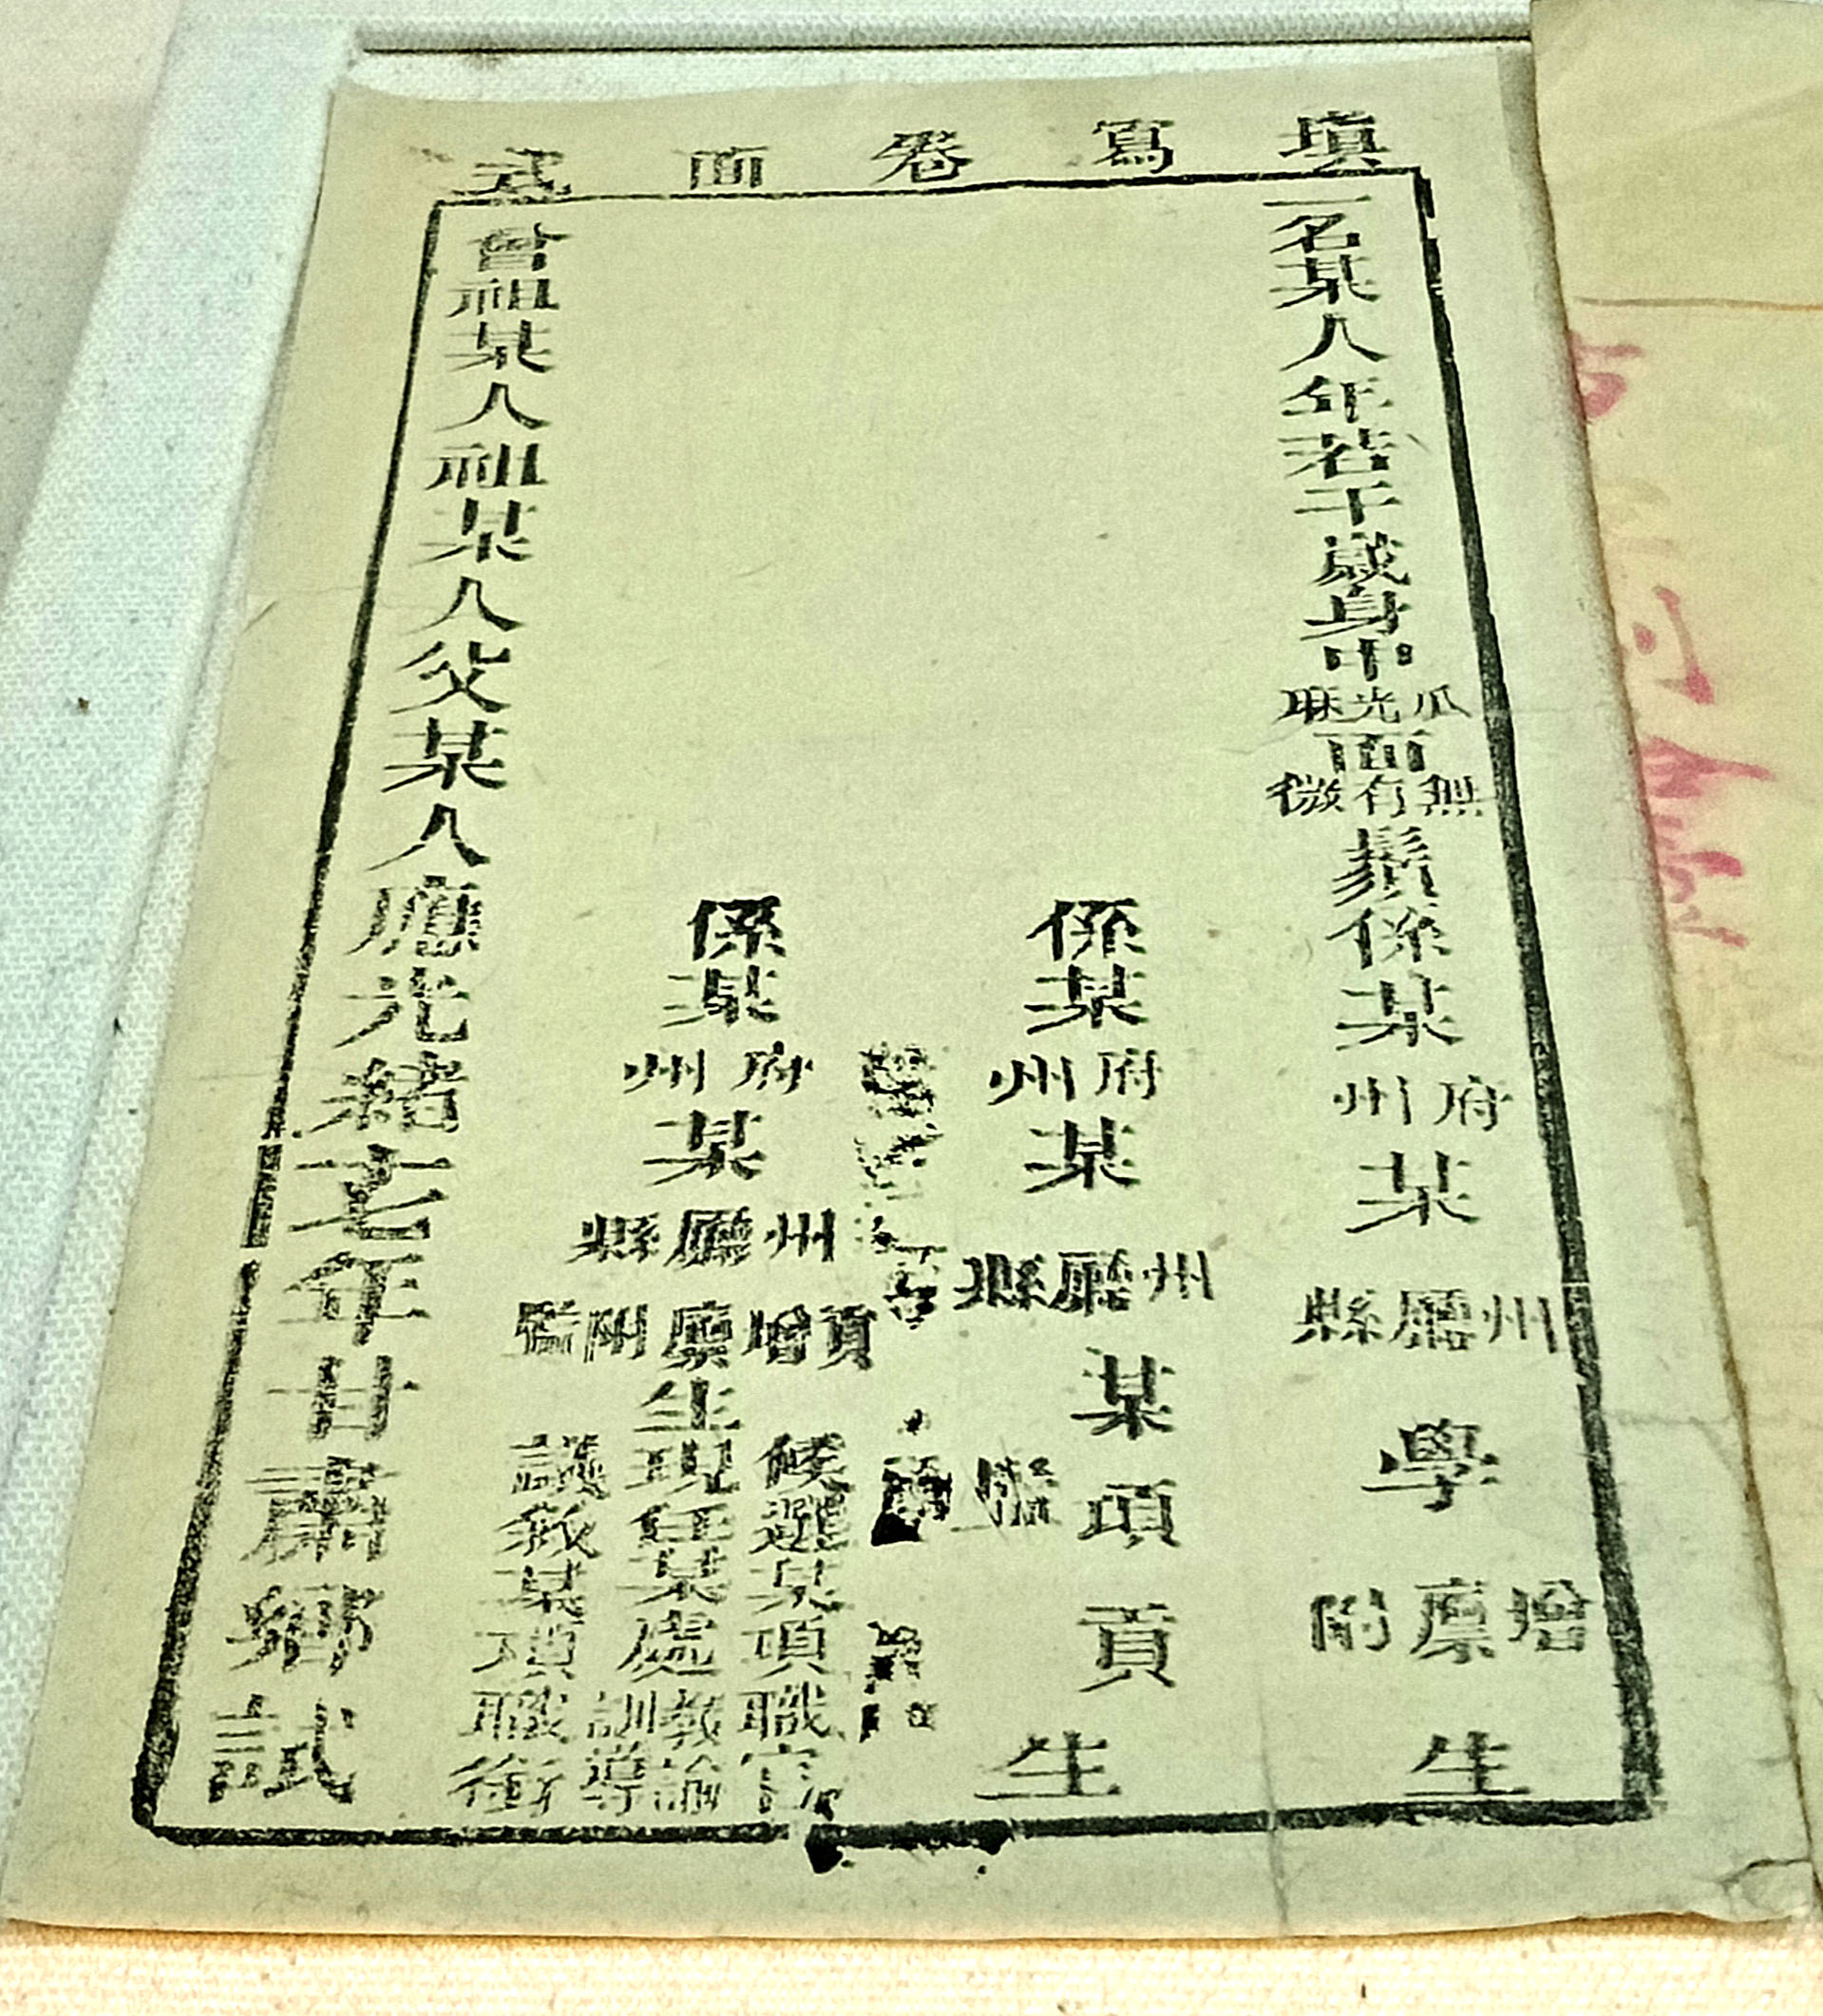 填寫卷面式
一名某人年若干歲身中瓜光麻面無有微鬚係某府州某州廳縣學增廩附生
係某府州某州廳縣某項貢監生
係某府州某州廳縣貢增廩附監生
候選某項職官
現任某處教諭訓導
議敘某項職銜
曾祖某人祖某人父某人應光緒十七年甘肅鄉試